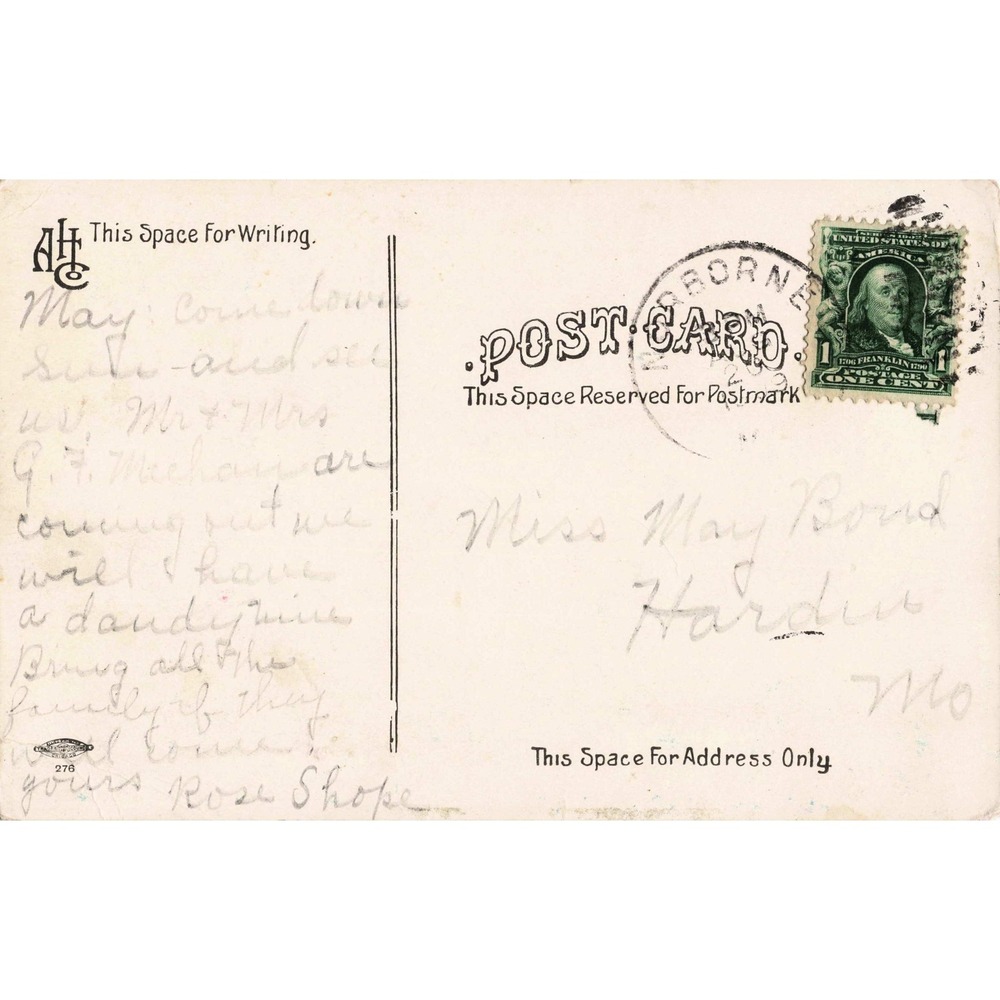 AHCo
This Space For Writing.
May: come down
Sun - and see
us. Mr & Mrs
G. F. Meehan are
coming out we
will have
a dandy time
Bring all the
family if they
will come
yours Rose Shope
276
POST CARD.
This Space Reserved For Postmark
NORBORNE
SERIES 1902
UNITED STATES OF
AMERICA
1 1
1706 FRANKLIN 1790
POSTAGE
ONE CENT
Miss May Bond
Hardin
Mo
This Space For Address Only